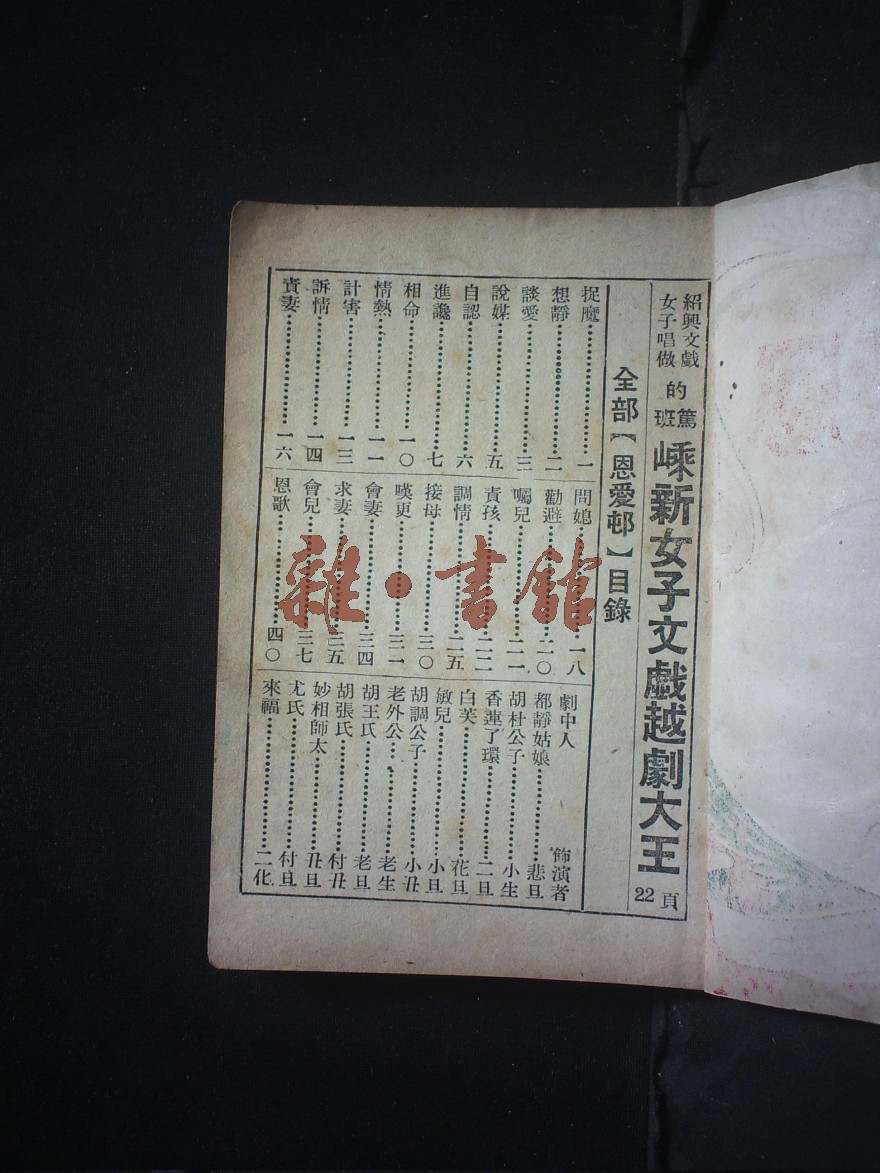 紹興文戲
女子唱做
的篤班
嵊新女子文戲越劇大王
22頁
全部【恩愛邨】目錄
捉魔一
想靜二
談愛三
說媒五
自認六
進讒七
相命一〇
情熱一一
計害一三
訴情一四
責妻一六
問媳一八
勸避二〇
囑兒二一
責孩二二
調情二五
接母三〇
嘆更三一
會妻三四
求妻三五
會兒三七
恩歌四〇
劇中人 飾演者
都靜姑娘悲旦
胡杜公子小生
香蓮了環二旦
白芙花旦
敏兒小旦
胡調公子小丑
老外公老生
胡王氏老旦
胡張氏付丑
妙相師太丑旦
尤氏付旦
來福二化
雜·書館